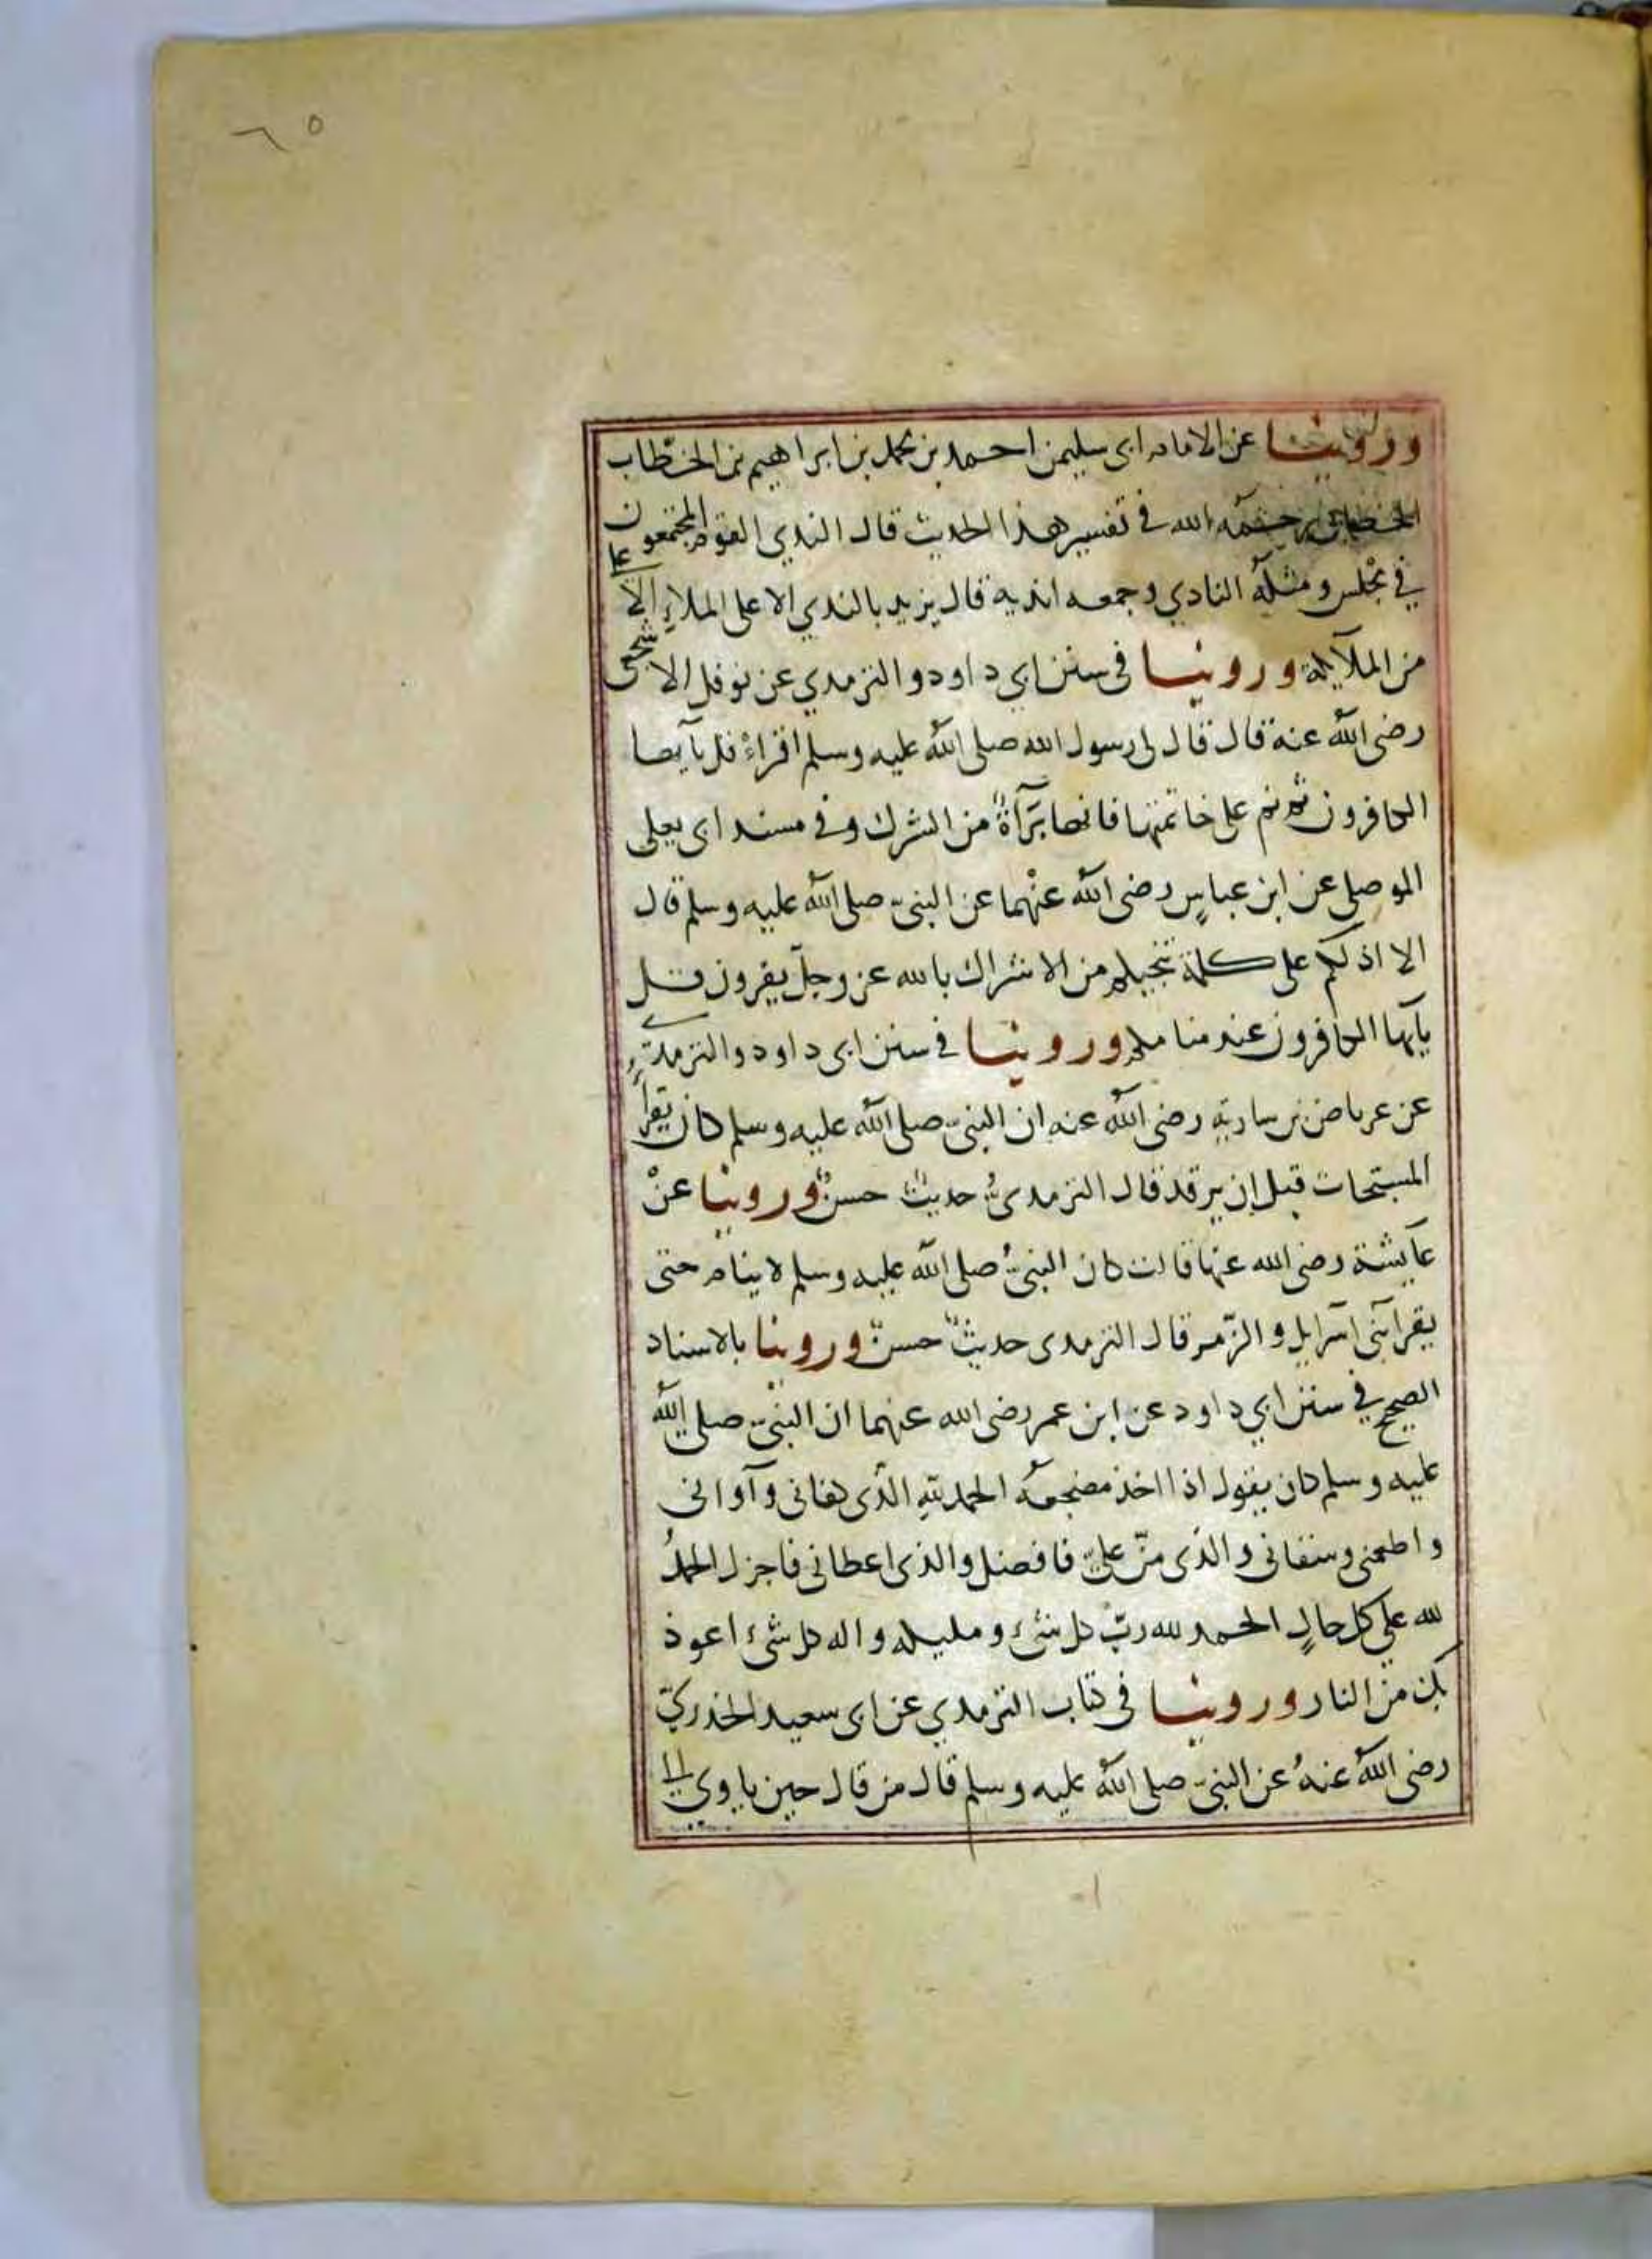 ٦٥
وروينا عن الامام ابى سليمن احمد بن محمد بن ابراهيم بن الخطّاب
الخطابى رحمه الله فى تفسير هذا الحديث قال الندي القوم المجتمعون
في مجلس ومثله النادي وجمعه اندية قال يريد بالندي الاعلى الملاء الاعلى
من الملآيكة وروينا فى سنن ابي داود والترمدي عن نوفل الاشجعى
رضى الله عنه قال قال لى رسول الله صلى الله عليه وسلم اقراء قل يآيها
الكافرون ثم نم على خاتمتها فانها برآءة من الشرك وفى مسند ابى يعلى
الموصلى عن ابن عباسٍ رضى الله عنْهما عن النبىّ صلى الله عليه وسلم قال
الا ادلكم على كلمة تنجيكم من الاشراك بالله عز وجلّ يقرون قل
يآيها الكافرون عند منامكم وروينا فى سنن ابى داود والترمذي
عن عرباض بن ساريةٍ رضى الله عنه ان النبىّ صلى الله عليه وسلم كان يقرأ
المسبّحات قبل ان يرقد قال الترمدىُّ حديثٌ حسنٌ وروينا عنْ
عايشة رضى الله عنها قالت كان النبىُّ صلى الله عليه وسلم لا ينام حتى
يقرا بنى اسرايل والزّمر قال الترمدى حديثٌ حسنٌ وروينا بالاسناد
الصحيح في سنن ابي داود عن ابن عمر رضى الله عنهما ان النبىّ صلى الله
عليه وسلم كان يقول اذا اخذ مضجعه الحمد للهِ الّذى كفانى وآوانى
واطعمنى وسقانى والذى منّ علىّ فافضل والذى اعطانى فاجزل الحمدُ
لله على كل حالٍ الحمد لله ربّ كل شىء ومليكه واله كل شىء اعوذ
بك من النار وروينا فى كتاب الترمدي عن ابى سعيد الخدريّ
رضى الله عنهُ عن النبىّ صلى الله عليه وسلم قال من قال حين ياوي الى